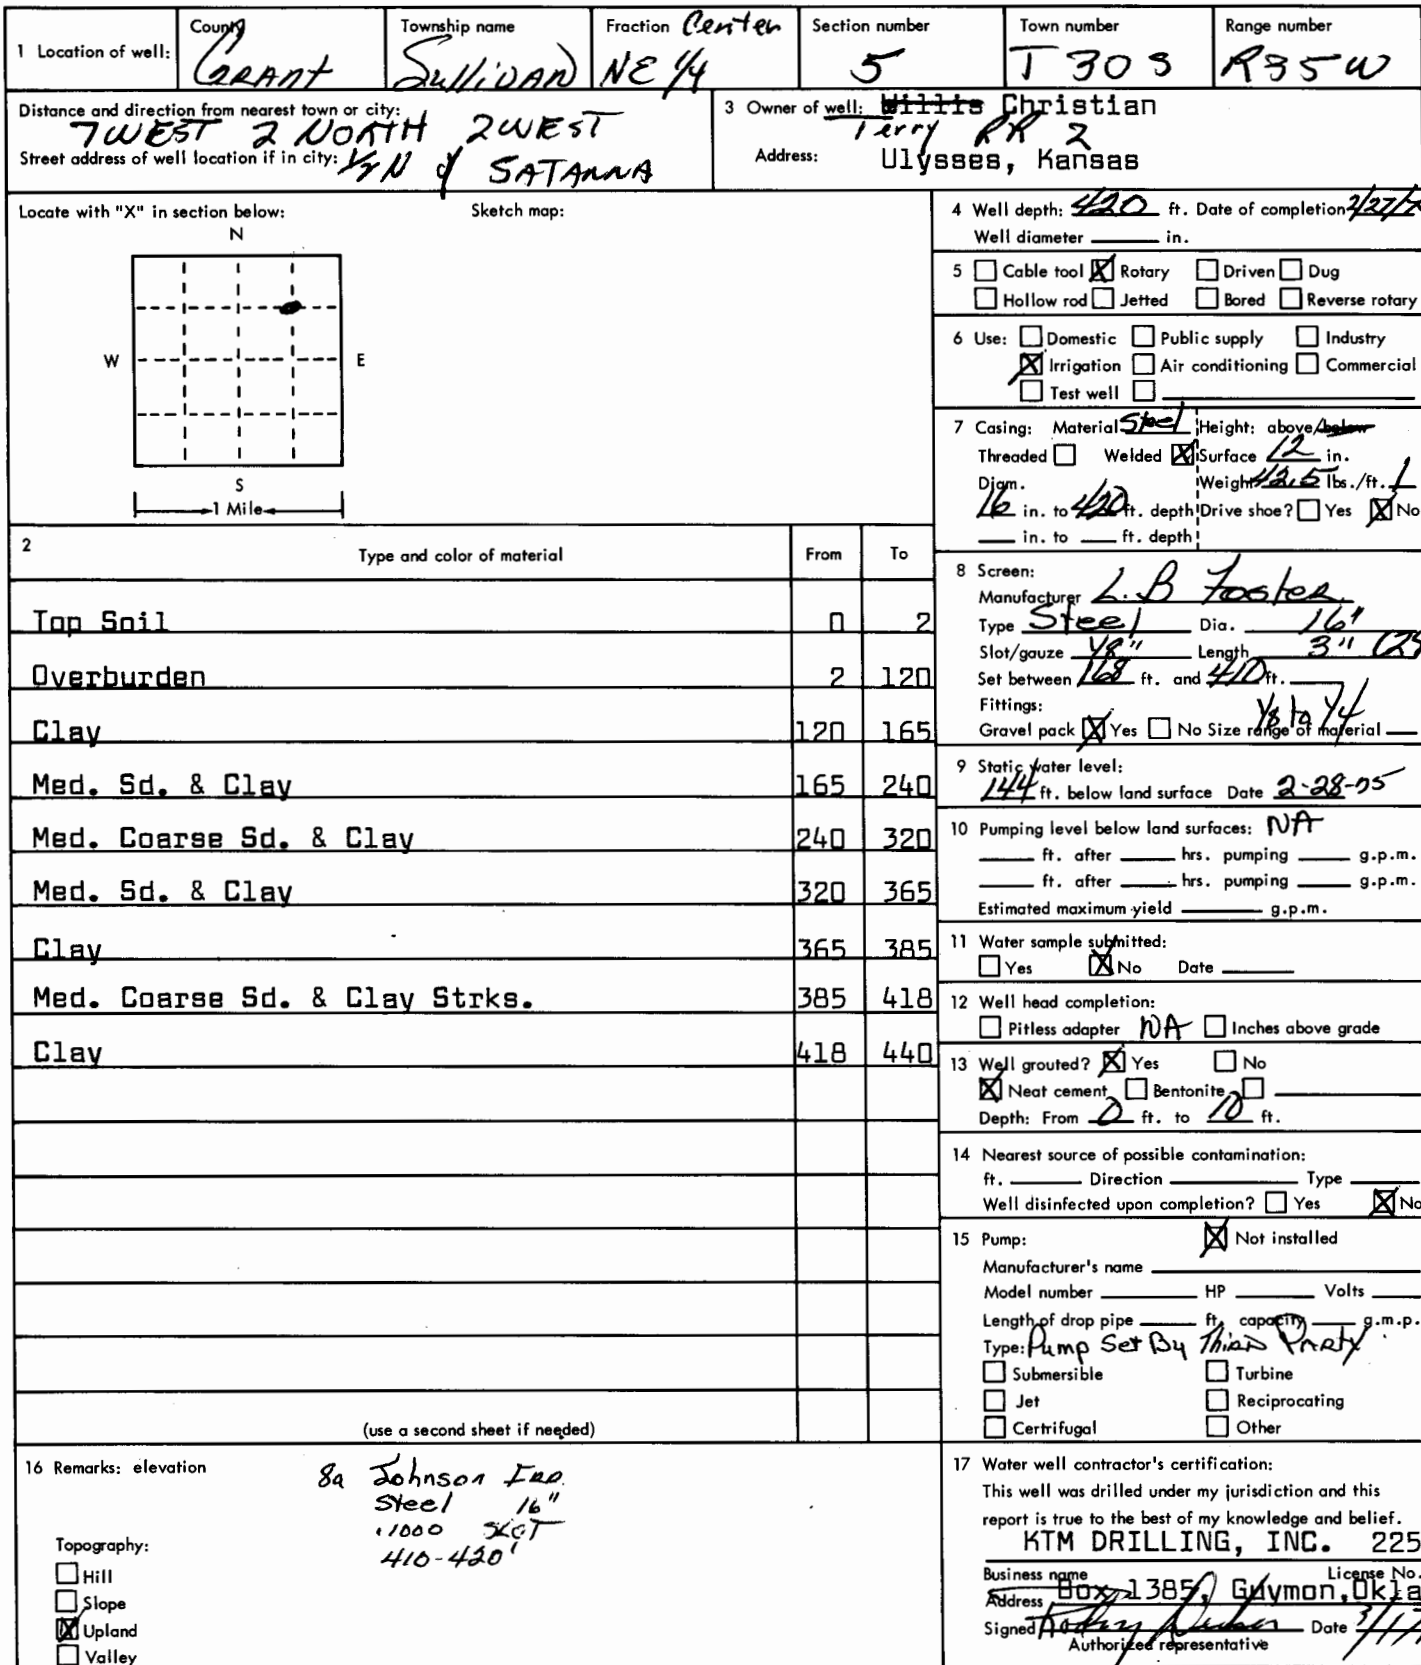 1 Location of well: County Grant Township name Sullivan Fraction Center NE 1/4 Section number 5 Town number T 30 S Range number R35W
Distance and direction from nearest town or city:
7 WEST 2 NORTH 2 WEST
Street address of well location if in city: 1/2 N of SATANNA
3 Owner of well: Willis Christian
Terry RR 2
Address: Ulysses, Kansas
Locate with "X" in section below: Sketch map:
N
W E
S
1 Mile
2 Type and color of material From To
Top Soil 0 2
Overburden 2 120
Clay 120 165
Med. Sd. & Clay 165 240
Med. Coarse Sd. & Clay 240 320
Med. Sd. & Clay 320 365
Clay 365 385
Med. Coarse Sd. & Clay Strks. 385 418
Clay 418 440
(use a second sheet if needed)
4 Well depth: 420 ft. Date of completion 2/27/
Well diameter in.
5 Cable tool X Rotary Driven Dug
Hollow rod Jetted Bored Reverse rotary
6 Use: Domestic Public supply Industry
X Irrigation Air conditioning Commercial
Test well
7 Casing: Material Steel Height: above/below
Threaded Welded X Surface 12 in.
Diam. Weight 42.5 lbs./ft.
16 in. to 420 ft. depth Drive shoe? Yes X No
in. to ft. depth
8 Screen:
Manufacturer L.B Foster
Type Steel Dia. 16"
Slot/gauze 1/8" Length 3"
Set between 168 ft. and 410 ft.
Fittings: 1/8 to 1/4
Gravel pack X Yes No Size range of material
9 Static water level:
144 ft. below land surface Date 2-28-75
10 Pumping level below land surfaces: NA
ft. after hrs. pumping g.p.m.
ft. after hrs. pumping g.p.m.
Estimated maximum yield g.p.m.
11 Water sample submitted:
Yes X No Date
12 Well head completion:
Pitless adapter NA Inches above grade
13 Well grouted? X Yes No
X Neat cement Bentonite
Depth: From 0 ft. to 10 ft.
14 Nearest source of possible contamination:
ft. Direction Type
Well disinfected upon completion? Yes X No
15 Pump: X Not installed
Manufacturer's name
Model number HP Volts
Length of drop pipe ft. capacity g.m.p.
Type: Pump Set By Third Party
Submersible Turbine
Jet Reciprocating
Certrifugal Other
16 Remarks: elevation
8a Johnson
Steel 16"
.1000 SLOT
410-420'
Topography:
Hill
Slope
X Upland
Valley
17 Water well contractor's certification:
This well was drilled under my jurisdiction and this
report is true to the best of my knowledge and belief.
KTM DRILLING, INC. 225
Business name License No.
Address Box 1385, Guymon, Okla
Signed Date 3/17
Authorized representative